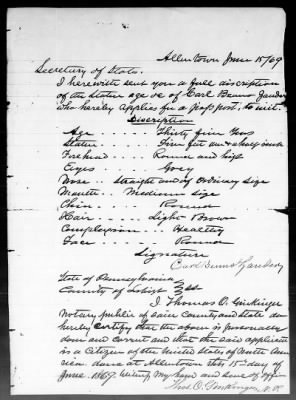 Allentown June 15/69
Secretary of State.
I herewith sent you a full discription
of the Statur age &c of Carl Benno
who hereby applies for a passport, to wit.
Discription
Age .... Thirty five Years
Statur .... Five feet one & a half inch
Forehead .... Round and high
Eyes .... Grey
Nose ... Straight and of Ordinary Size
Mouth .. Medium Size
Chin .... Round
Hair .... Light Brown
Complexion .... Healthy
Face .... Round
Signature
Carl Benno
State of Pennsylvania
County of Lehigh } SS
I Thomas O. Ginkinger
Notary public of said County and State do
hereby certify that the above is personally
done and correct and that the said applicant
is a Citizen of the United States of North Amer-
ica. done at Allentown this 15" day of
June 1869. Witness my hand and seal of office
Thos. O. Ginkinger N.P.